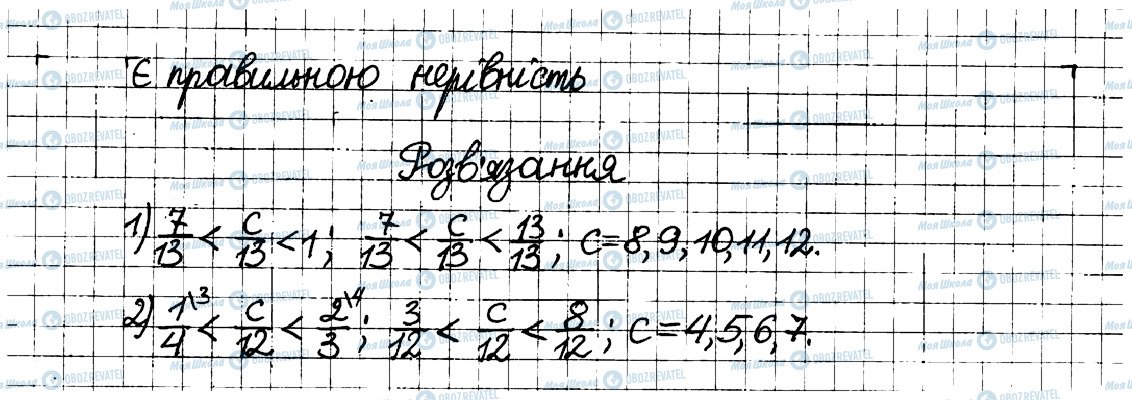 Є правильною нерівність
Розв'язання
1) 7/13 < c/13 < 1; 7/13 < c/13 < 13/13; c = 8, 9, 10, 11, 12.
2) 1\3/4 < c/12 < 2\4/3; 3/12 < c/12 < 8/12; c = 4, 5, 6, 7.